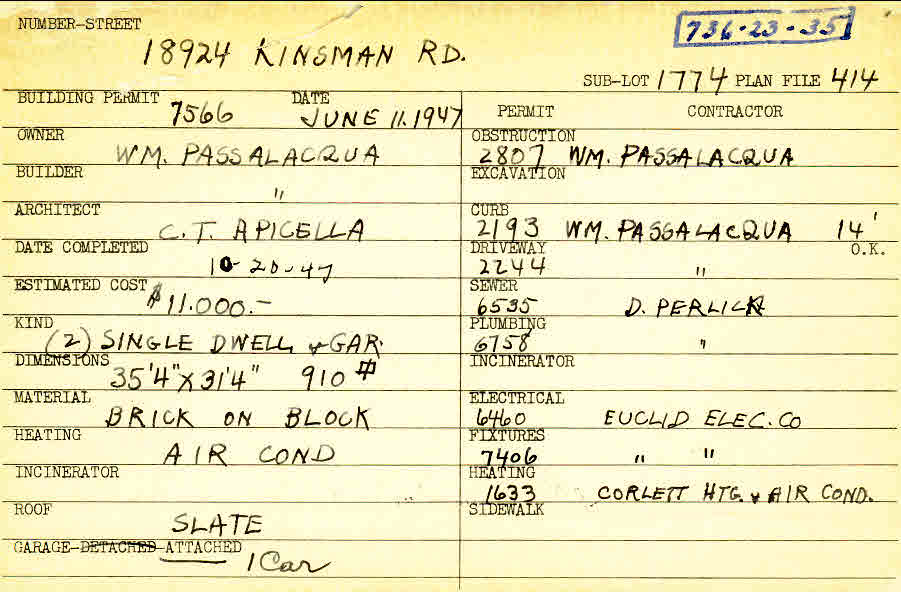 NUMBER-STREET
18924 KINSMAN RD.
736-23-35
SUB-LOT 1774 PLAN FILE 414
BUILDING PERMIT 7566 DATE JUNE 11.1947
OWNER
WM. PASSALACQUA
BUILDER
"
ARCHITECT
C.T. APICELLA
DATE COMPLETED
10-20-47
ESTIMATED COST
$11.000.-
KIND
(2) SINGLE DWELL & GAR.
DIMENSIONS
35'4" X 31'4" 910 #
MATERIAL
BRICK ON BLOCK
HEATING
AIR COND
INCINERATOR
ROOF
SLATE
GARAGE-DETACHED-ATTACHED
1 Car
PERMIT CONTRACTOR
OBSTRUCTION
2807 WM. PASSALACQUA
EXCAVATION
CURB
2193 WM. PASSALACQUA 14'
DRIVEWAY O.K.
2244 "
SEWER
6535 D. PERLICK
PLUMBING
6758 "
INCINERATOR
ELECTRICAL
6460 EUCLID ELEC. CO
FIXTURES
7406 " "
HEATING
1633 CORLETT HTG. & AIR COND.
SIDEWALK